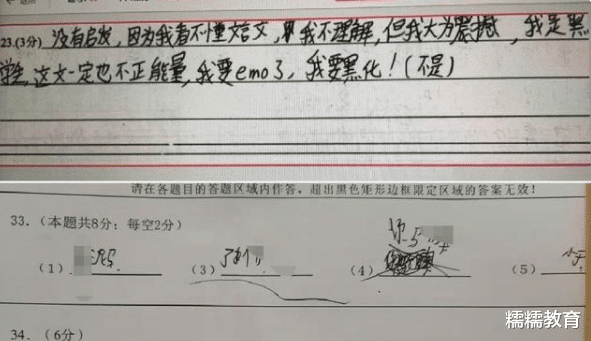 23.(3分) 没有启发,因为我看不懂文言文,我不理解,但我大为震撼,我是黑
学生,这文一定也不正能量,我要emo了,我要黑化!(不是)
请在各题目的答题区域内作答,超出黑色矩形边框限定区域的答案无效!
33.(本题共8分;每空2分)
(1) (3) (4) (5)
34.(6分)
糯糯教育